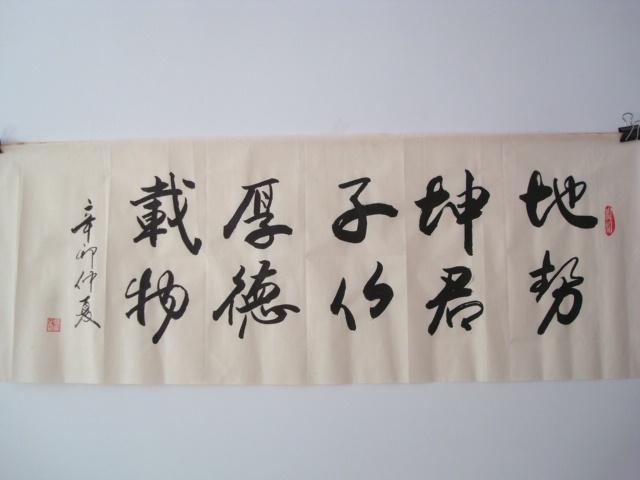 地势
坤君
子以
厚德
載物
辛卯仲夏